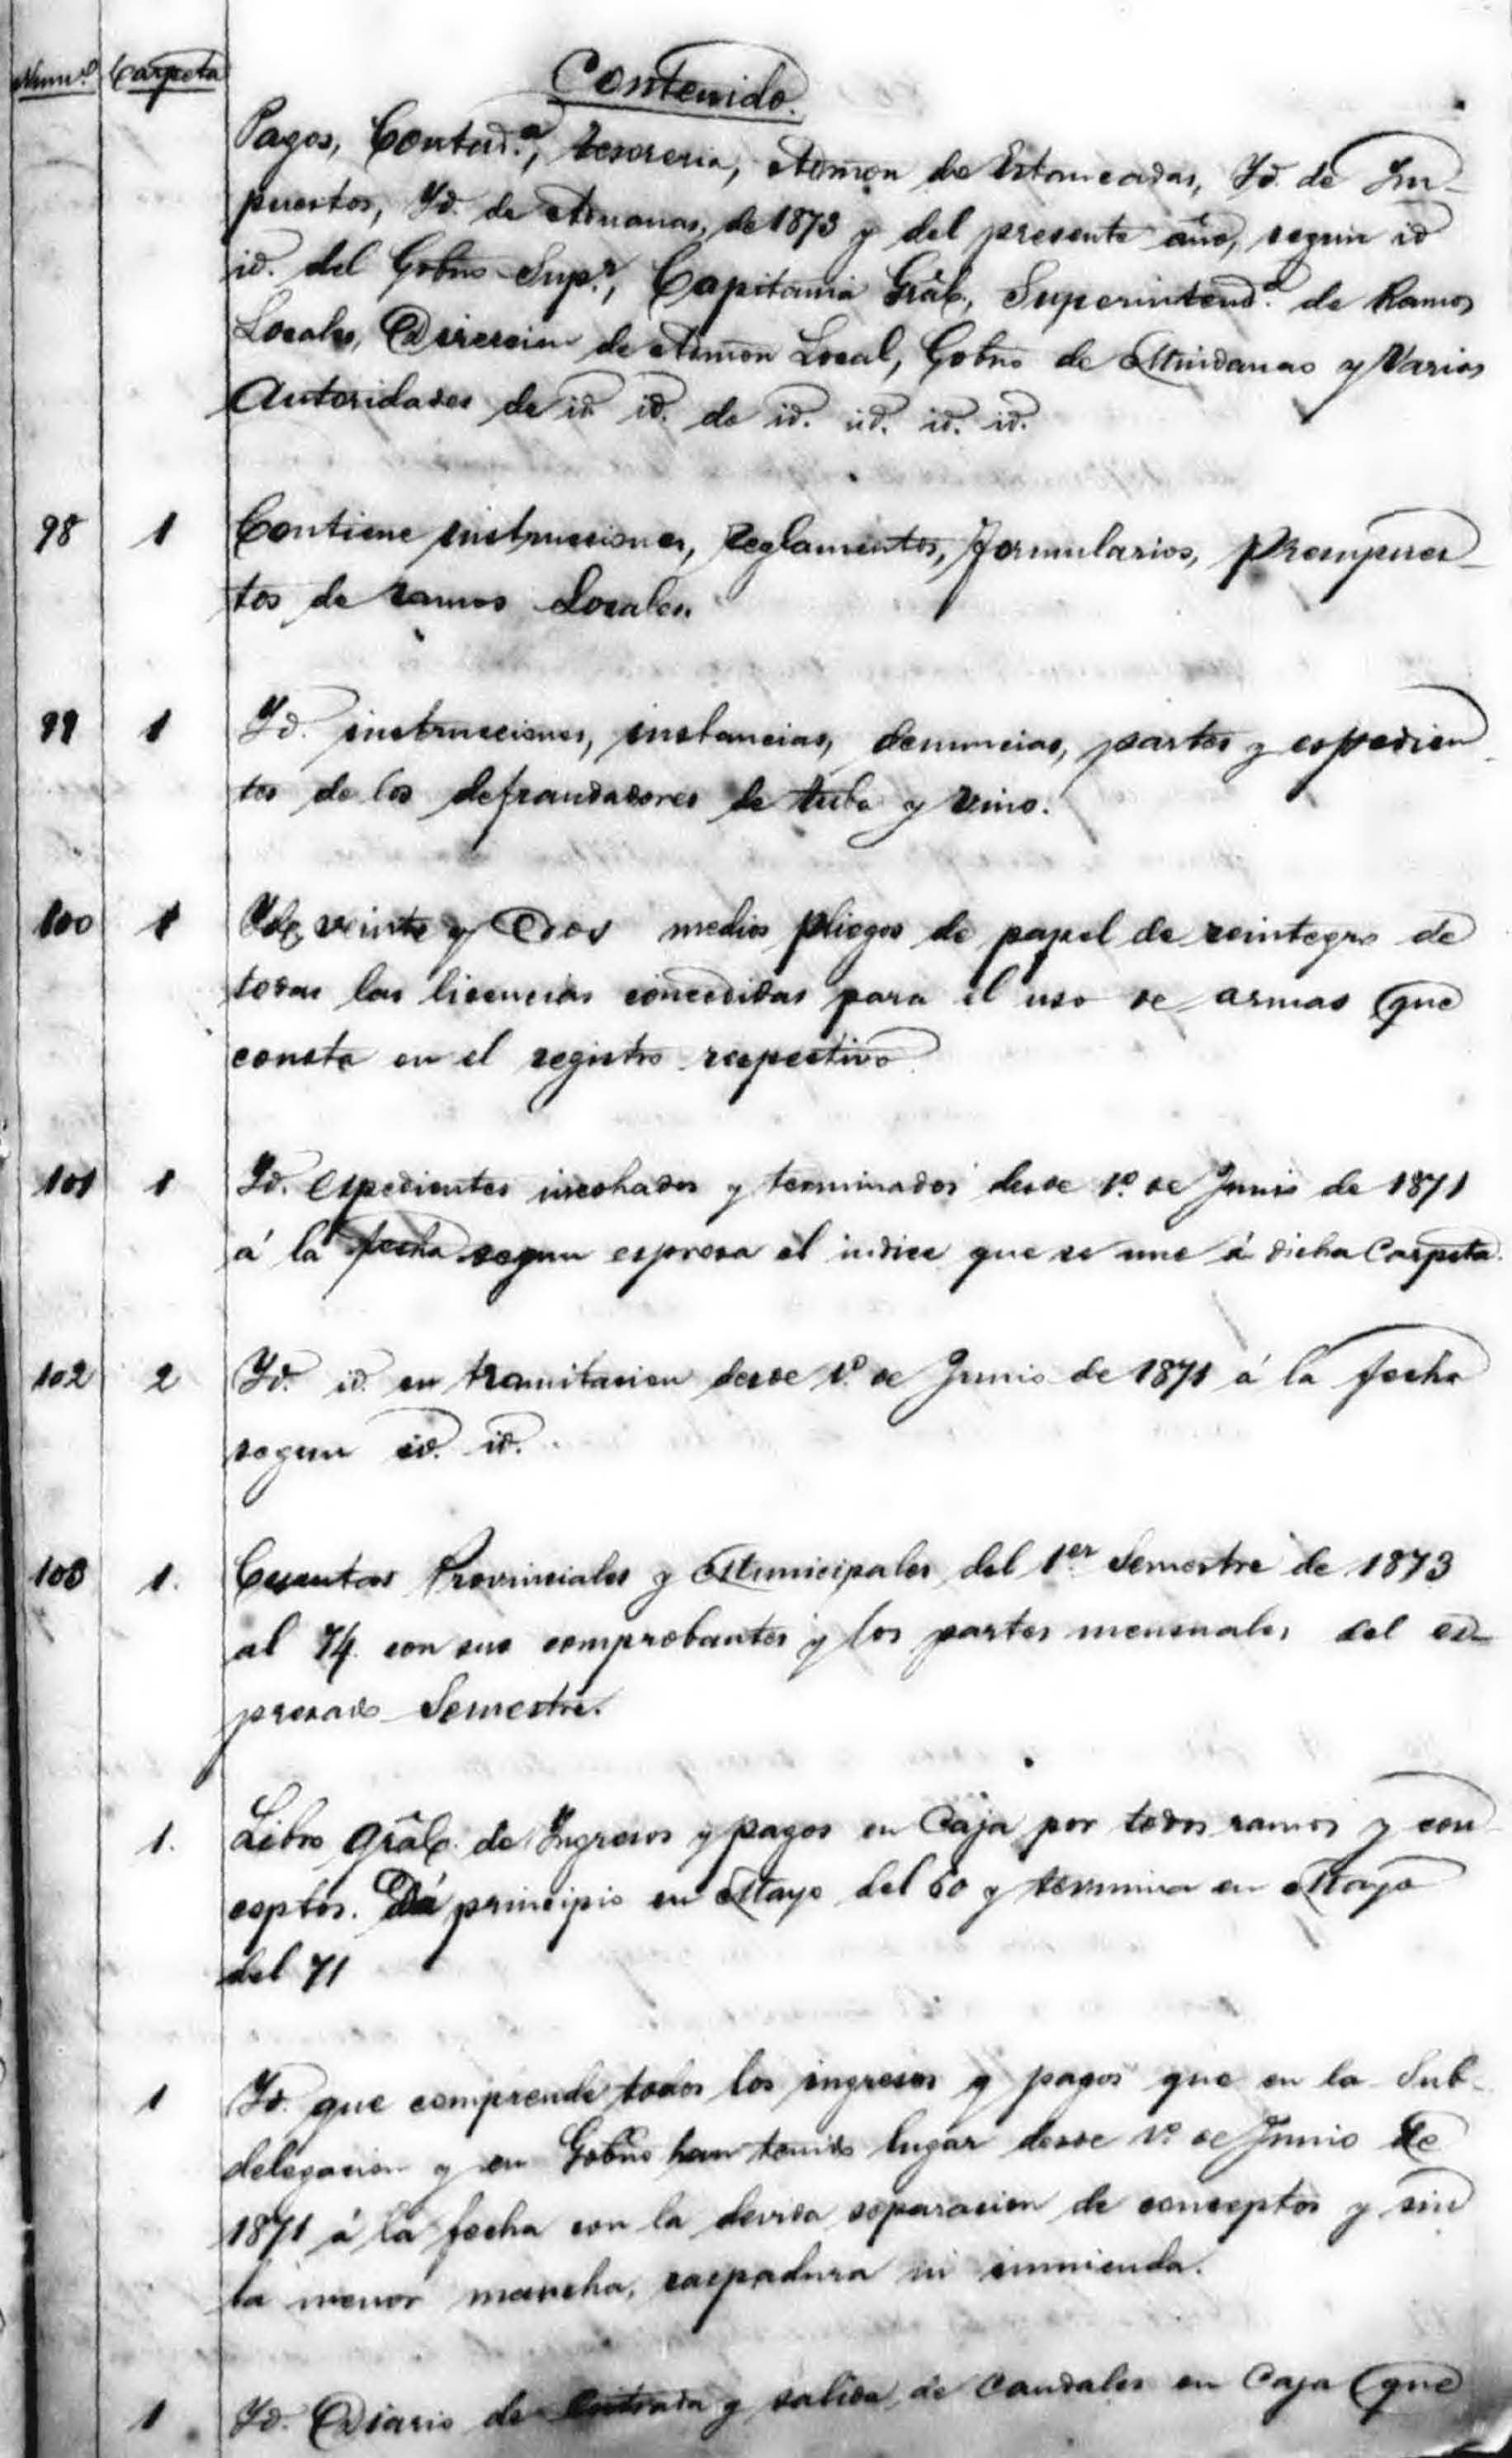 Num.º Carpeta Contenido.
Pagos, Contad.ª, tesoreria, Admon de Estancadas, Yd. de Im-
puestos, Yd. de Aduanas, de 1873 y del presente año, segun id
id. del Gobno Sup.r, Capitania Gral, Superintend.ª de Ramos
Locales, Direccion de Admon Local, Gobno de Mindanao y Varias
Autoridades de id. id. de id. id. id. id.
98 1 Contiene instrucciones, Reglamentos, formularios, Presupues-
tos de ramos Locales.
99 1 Yd. instrucciones, instancias, denuncias, partes y espedien-
tes de los defraudadores de tuba y vino.
100 1 Yd. veinte y Dos medios pliegos de papel de reintegro de
todas las licencias concedidas para el uso de armas que
consta en el registro respectivo
101 1 Yd. Espedientes incohados y terminados desde 1º de Junio de 1871
á la fecha segun espresa el indice que se une á dicha Carpeta.
102 2 Yd. id. en tramitacion desde 1º de Junio de 1871 á la fecha
segun id. id.
103 1. Cuentas Provinciales y Municipales del 1er Semestre de 1873
al 74 con sus comprobantes y los partes mensuales del es-
presado Semestre.
1. Libro Gral. de Ingresos y pagos en Caja por todos ramos y con-
ceptos. Dá principio en Mayo del 60 y termina en Mayo
del 71
1 Yd. que comprende todos los ingresos y pagos que en la Sub-
delegacion y en Gobno han tenido lugar desde 1º de Junio de
1871 á la fecha con la devida separacion de conceptos y sin
la menor mancha, raspadura ni enmienda.
1 Yd. Diario de Entrada y salida de Caudales en Caja que